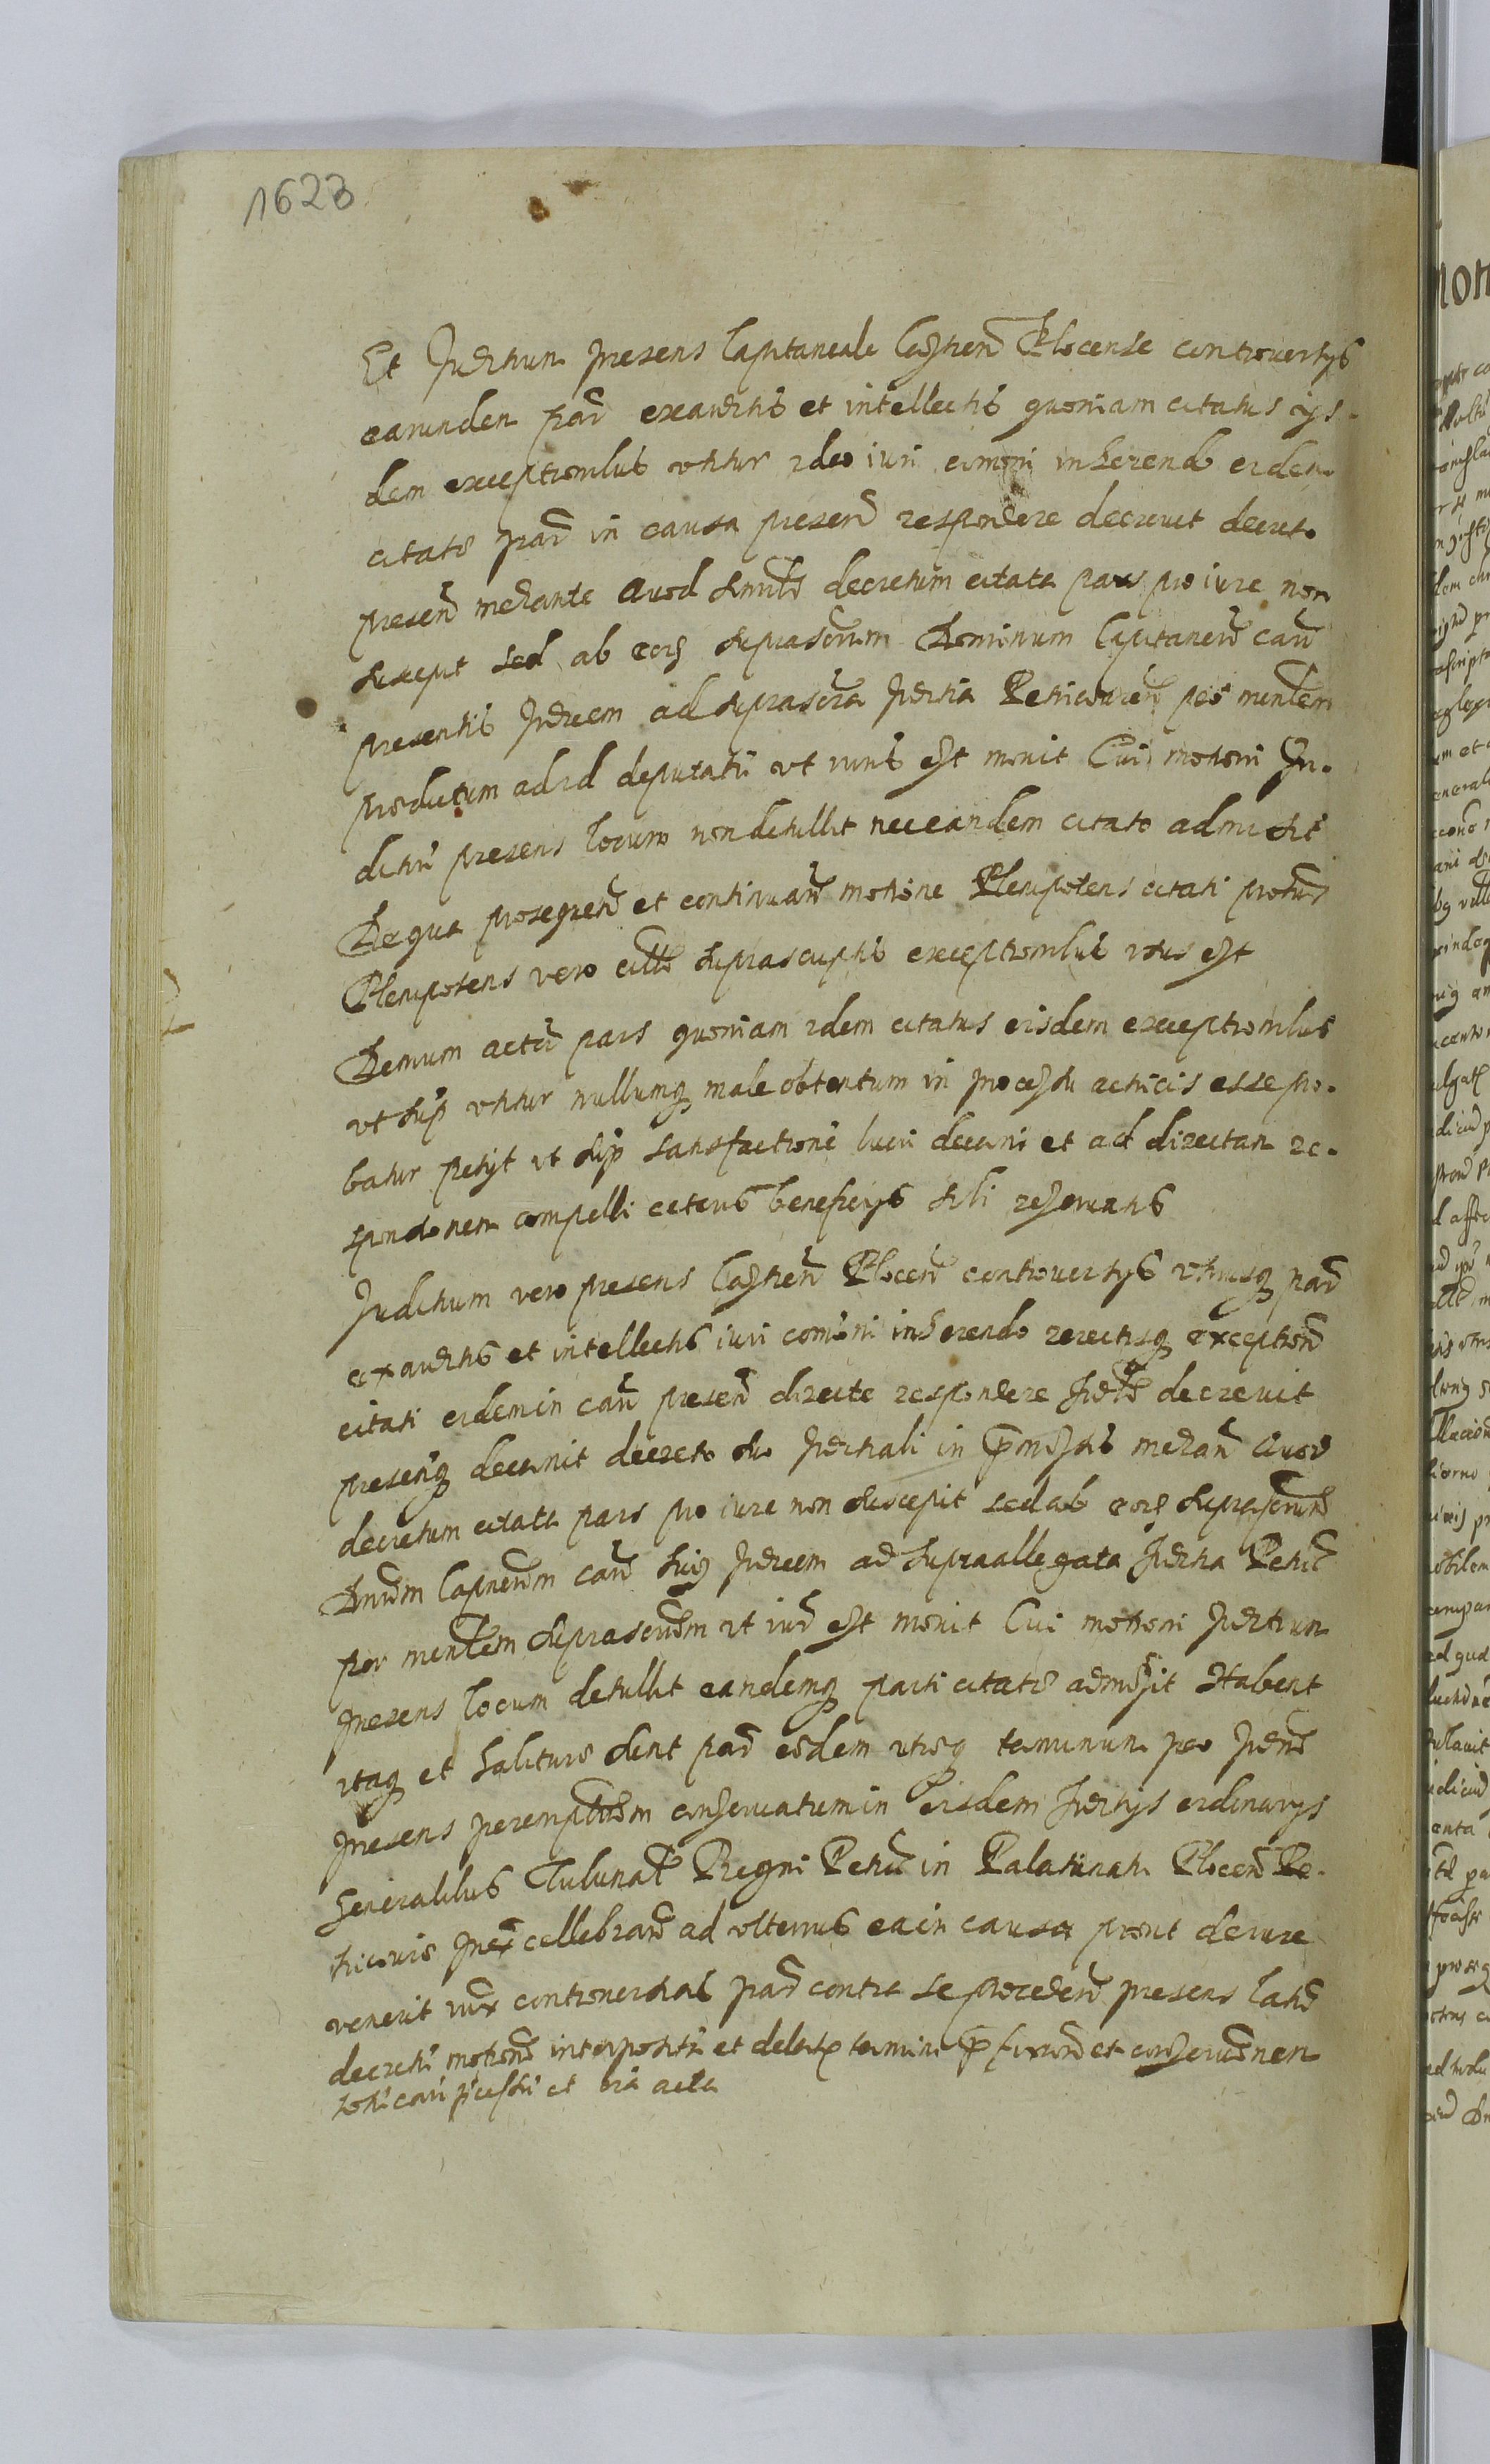 1623
Et Juditium presens Capitaneale Castren Plocense controversys
earunden par exauditis et intellectis quoniam citatus ijs-
dem exceptionibus utitur ideo iuri com̃ni inherendo eidem
citate par in causa presen respondere decrevit decreto
presen mediante Quod simile decretum citata pars pro iure non
suscepit sed ab eog suprascrum Dominum Capitaneum cau
presentis Judicem ad suprascra Juditia Petricovien per minlem
productum ad id deputatu ut iuris est movit Cui motioni Ju-
ditiu presens locum non detullit nec eandem citato admisit
De qua prosequen et continuan motione Plenipotens citati protus
Plenipotens vero suprascriptis exceptionibus usus est
Demum actor pars quoniam idem citatus eisdem exceptionibus
ut sup utitur nullumq male obtentum in processu acticis esse pro-
batur petijt ut sup satisfactione lucri decerni et ad directam re-
sponsionem compelli ceteris beneficijs sibi reservatis
Juditium vero presens Castren Plocen controversys utriusq par
exauditis et intellectis iuri comuni inherendo reiectisq exception
citati eidem in cau presen directe respondere decrevit
presenq decernit decreto suo Juditiali in premissis median Quod
decretum citata pars pro iure non suscepit sed ab eog suprascrum
Dnum Capneum cau huig Judicem ad supra allegata Juditia Petric
per minlem suprascrum ut iur est movit Cui motioni Juditium
presens locum detullit eandemq parti citate admisit Habent
itaq et habiture sunt par eedem utreq terminum pro
presens peremptorium conservatum in eisdem Juditijs ordinarys
Generalibus Tribunal Regni Petric in Palatinatu Plocen Pe-
tricovie cellebran ad ulterius ea in causa prout de iure
venerit iux controversias par contra se proceden presens
decreti motione interpositi et delate termini prefixion et conservionem
toti cau processui et oia acta